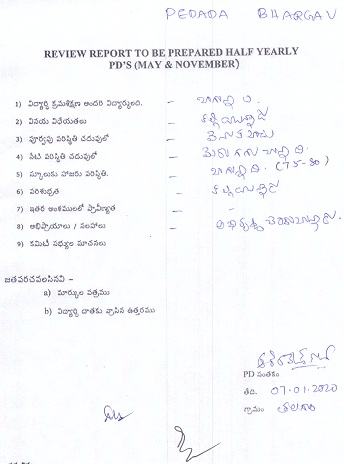 PEDADA BHARGAV
REVIEW REPORT TO BE PREPARED HALF YEARLY
PD'S (MAY & NOVEMBER)
1) విద్యార్థి క్రమశిక్షణ అందరి విద్యార్థులది. - బాగున్నది.
2) వినయ విధేయతలు - కల్గియున్నాడు
3) పూర్వపు పరిస్థితి చదువులో -
4) నేటి పరిస్థితి చదువులో - మెరుగుగా వున్నాది.
5) స్కూలుకు హాజరు పరిస్థితి. - బాగున్నది. (75-80)
6) పరిశుభ్రత - కల్గియున్నాడు.
7) ఇతర అంశములలో ప్రావీణ్యత -
8) అభిప్రాయాలు / సలహాలు - అభివృద్ధి
9) కమిటీ సభ్యుల సూచనలు
జతపరచవలసినవి -
a) మార్కుల పత్రము
b) విద్యార్థి దాతకు వ్రాసిన ఉత్తరము
PD సంతకం
తేది. 07-01-2020
గ్రామం